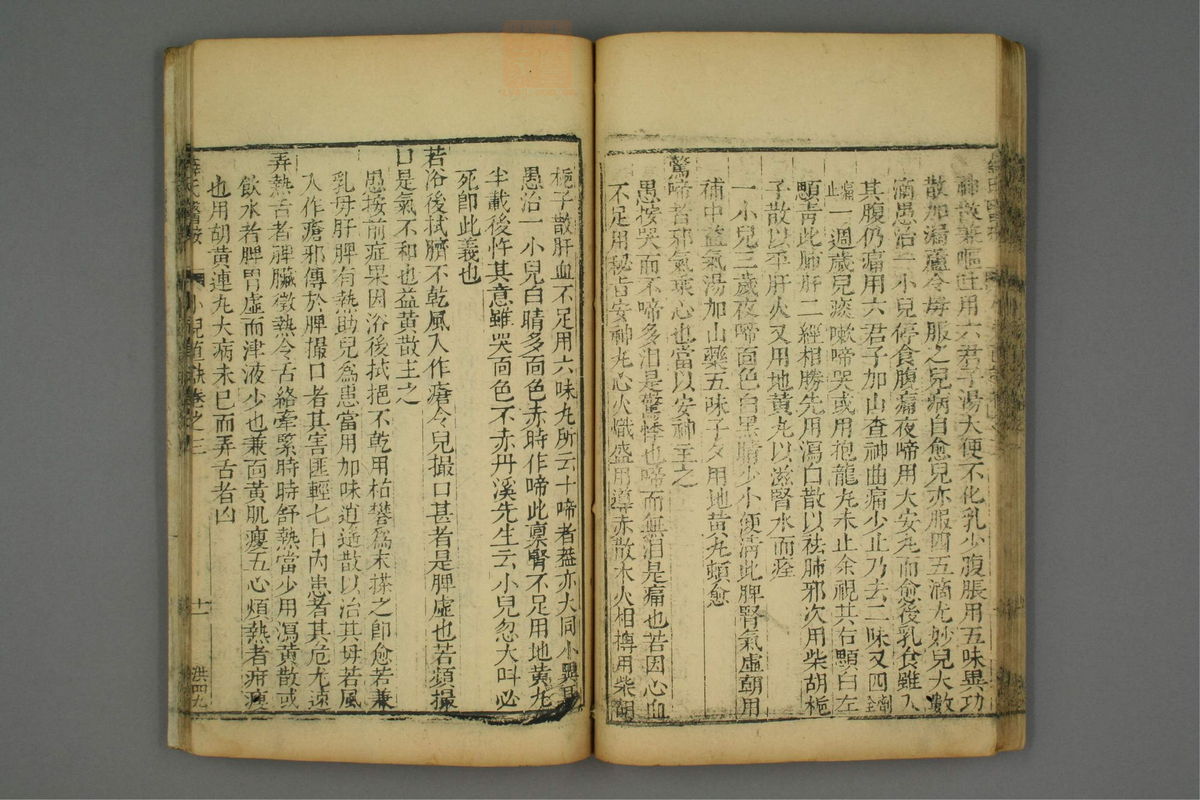 神散兼嘔吐用六君子湯大便不化乳少腹脹用五味異功
散加漏蘆令母服之兒病自愈兒亦服四五滴尤妙兒大數
滴愚治一小兒停食腹痛夜啼用大安丸而愈後乳食雖入
其腹仍痛用六君子加山查神曲痛少止乃去二味又四劑
痛止一週歲兒痰嗽啼哭或用抱龍丸未止余視其右顋白左
顋青此肺肝二經相勝先用瀉白散以祛肺邪次用柴胡梔
子散以平肝火又用地黃丸以滋腎水而痊
一小兒三歲夜啼面色白黑睛少小便清此脾腎氣虛朝用
補中益氣湯加山藥五味子夕用地黃丸頓愈
驚啼者邪氣乘心也當以安神主之
愚按哭而不啼多泪是驚悸也啼而無泪是痛也若因心血
不足用秘旨安神丸心火熾盛用導赤散木火相摶用柴胡
梔子散肝血不足用六味丸所云十啼者葢亦大同小異耳
愚治一小兒白睛多面色赤時作啼此禀腎不足用地黃丸
半載後忤其意雖哭面色不赤丹溪先生云小兒忽大叫必
死卽此義也
若浴後拭臍不乾風入作瘡令兒撮口甚者是脾虛也若頻撮
口是氣不和也益黃散主之
愚按前症果因浴後拭挹不乾用枯礬爲末摻之卽愈若兼
乳母肝脾有熱助兒爲患當用加味逍遙散以治其母若風
入作瘡邪傳於脾撮口者其害匪輕七日內患者其危尤速
弄熱舌者脾臟微熱令舌絡牽緊時時舒熱當少用瀉黃散或
飲水者脾胃虛而津液少也兼面黃肌瘦五心煩熱者疳瘦
也用胡黃連丸大病未已而弄舌者凶
小兒直訣卷之三
十一
洪四九